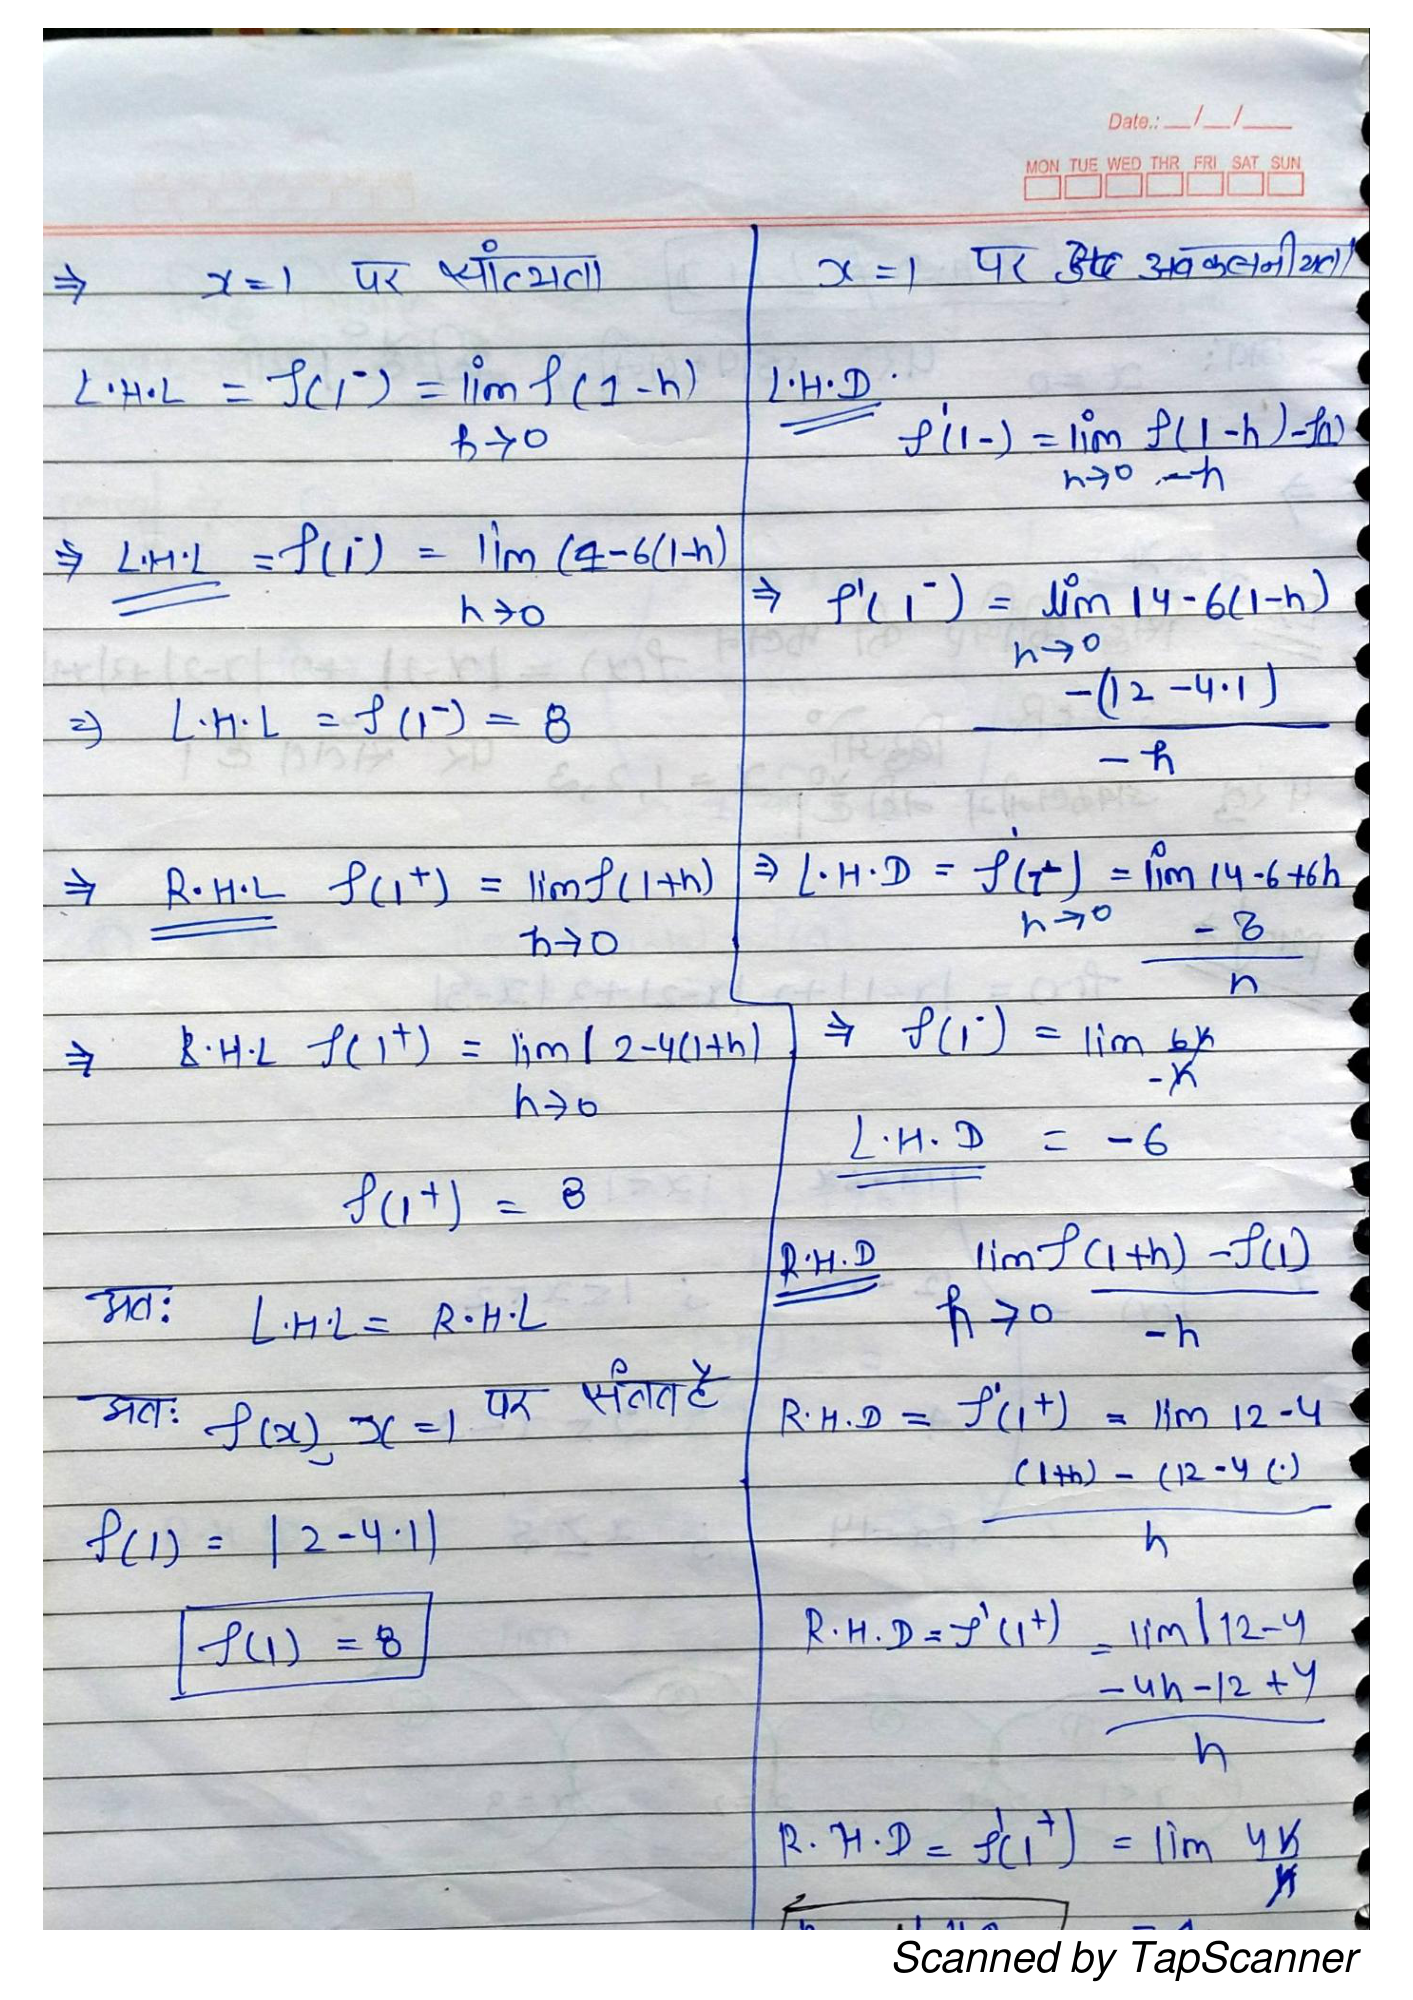 Date.: __/__/___
MON TUE WED THR FRI SAT SUN
⇒ x=1 पर सांत्यता
L.H.L = f(1⁻) = lim f(1-h)
h→0
⇒ L.H.L = f(1⁻) = lim (4-6(1-h)
h→0
⇒ L.H.L = f(1⁻) = 8
⇒ R.H.L f(1⁺) = lim f(1+h)
h→0
⇒ R.H.L f(1⁺) = lim 12-4(1+h)
h→0
f(1⁺) = 8
अतः L.H.L = R.H.L
अतः f(x), x=1 पर संतत है
f(1) = |2-4.1|
f(1) = 8
x=1 पर अवकलनीयता
L.H.D.
f'(1-) = lim f(1-h)-f(1)
h→0 -h
⇒ f'(1⁻) = lim 14-6(1-h)
h→0
-(12-4.1)
-h
⇒ L.H.D = f'(1⁻) = lim 14-6+6h
h→0 -8
h
⇒ f(1⁻) = lim 6h
-h
L.H.D = -6
R.H.D lim f(1+h)-f(1)
h→0 -h
R.H.D = f'(1⁺) = lim 12-4
(1+h) - (12-4(.)
h
R.H.D = f'(1⁺) = lim | 12-4
-4h-12+4
h
R.H.D = f'(1⁺) = lim 4h
h
Scanned by TapScanner